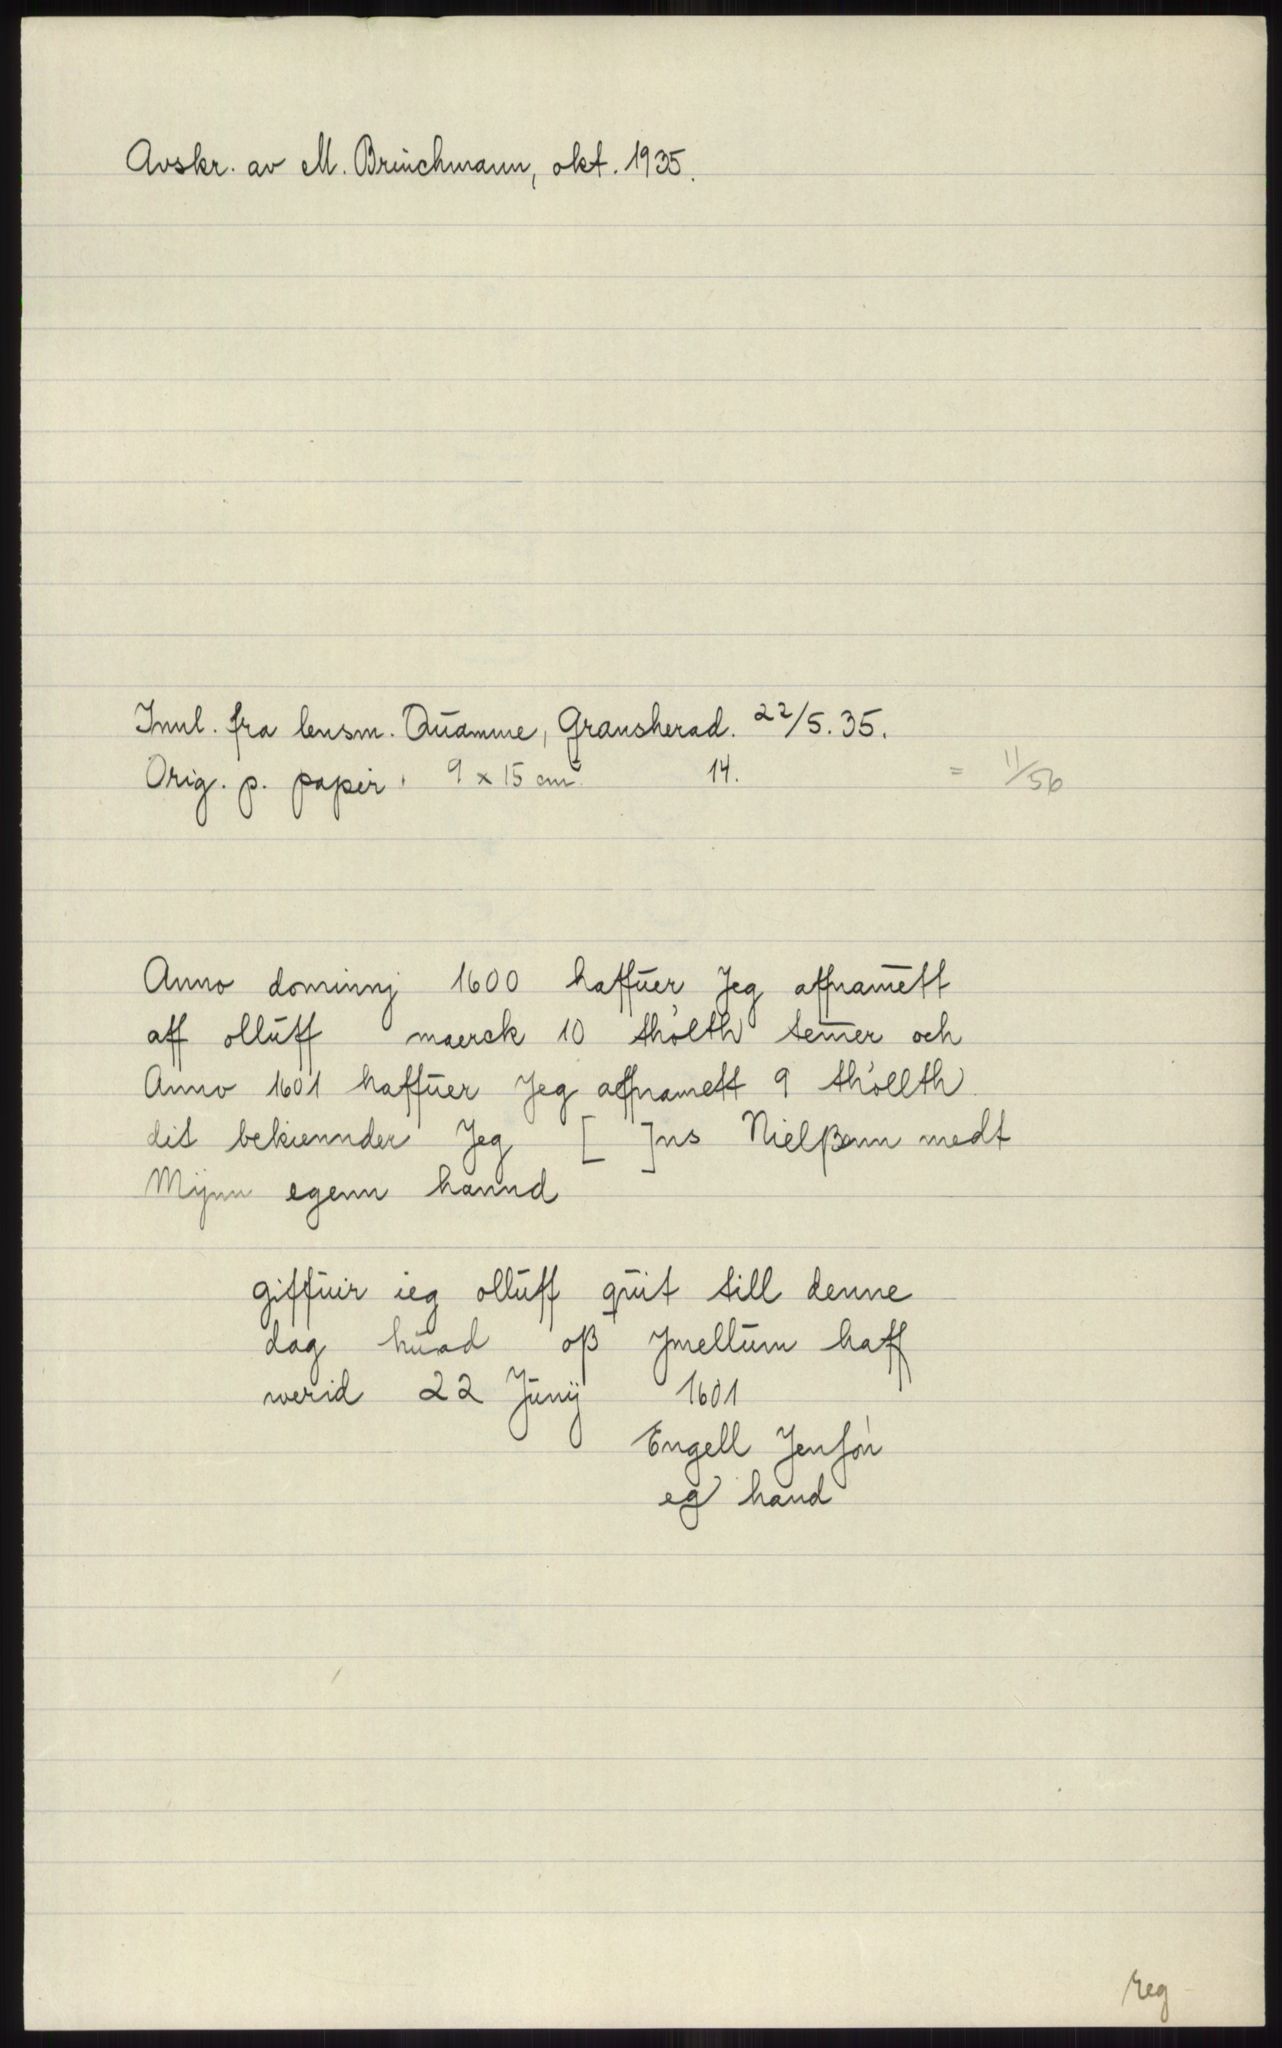 Avskr. av M. Brinchmann, okt. 1935.
Innl. fra lensm. Quamme, Gransherad. 22/5. 35.
Orig. p. papir. 9 x 15 cm². 14. = 11/56
Anno dominnj 1600 haffuer Jeg affnamett
aff olluff maerck 10 thólth temer och
Anno 1601 haffuer Jeg affnamett 9 thóllth
dit bekiennder Jeg [ ]ns Nielßenn medt
Mynn egenn hannd
giffuir ieg olluff quit till denne
dag huad oß ymellum haff
werid 22 Junij 1601
Engell Jensón
eg hand
reg